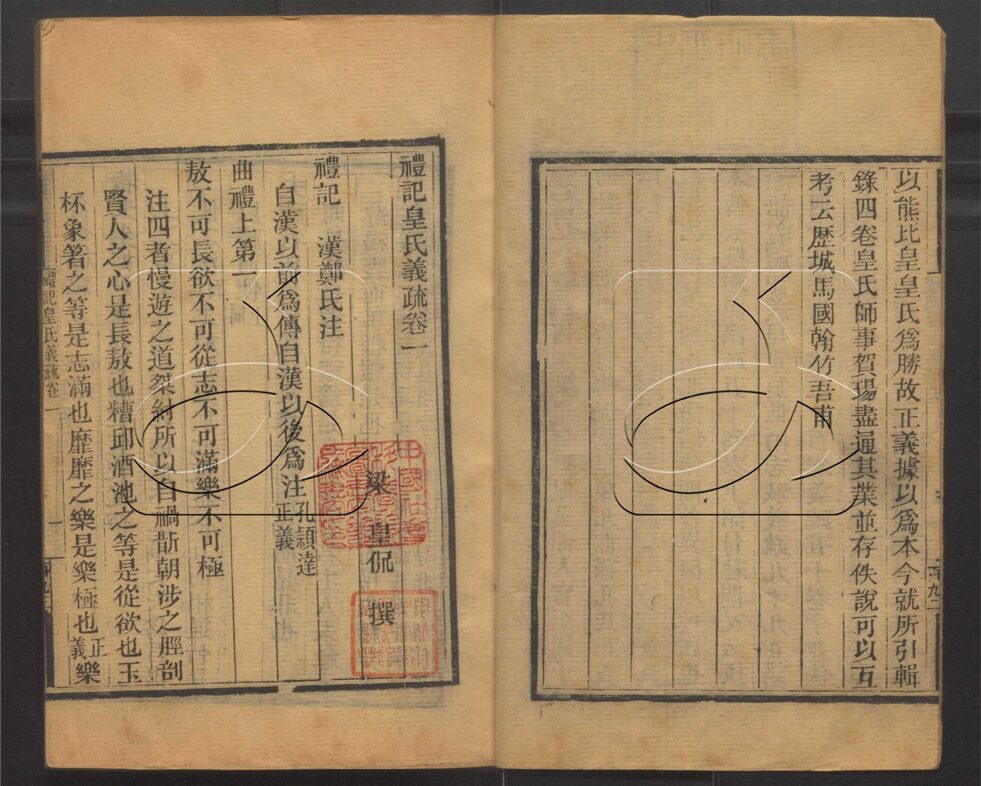 以熊比皇皇氏爲勝故正義據以爲本今就所引輯
錄四卷皇氏師事賀瑒盡通其業並存佚說可以互
考云歷城馬國翰竹吾甫
禮記皇氏義疏卷一
梁 皇侃 撰
禮記 漢鄭氏注
自漢以前爲傳自漢以後爲注孔穎達正義
曲禮上第一
敖不可長欲不可從志不可滿樂不可極
注四者慢遊之道桀紂所以自禍斮朝涉之脛剖
賢人之心是長敖也糟邱酒池之等是從欲也玉
杯象箸之等是志滿也靡靡之樂是樂極也正義樂
禮記皇氏義疏卷一
一